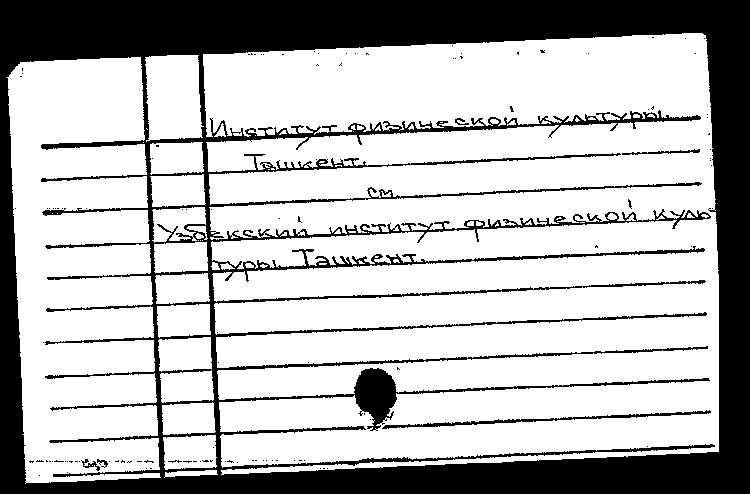 Институт физической культуры.
Ташкент.
см.
Узбекский институт физической куль-
туры. Ташкент.